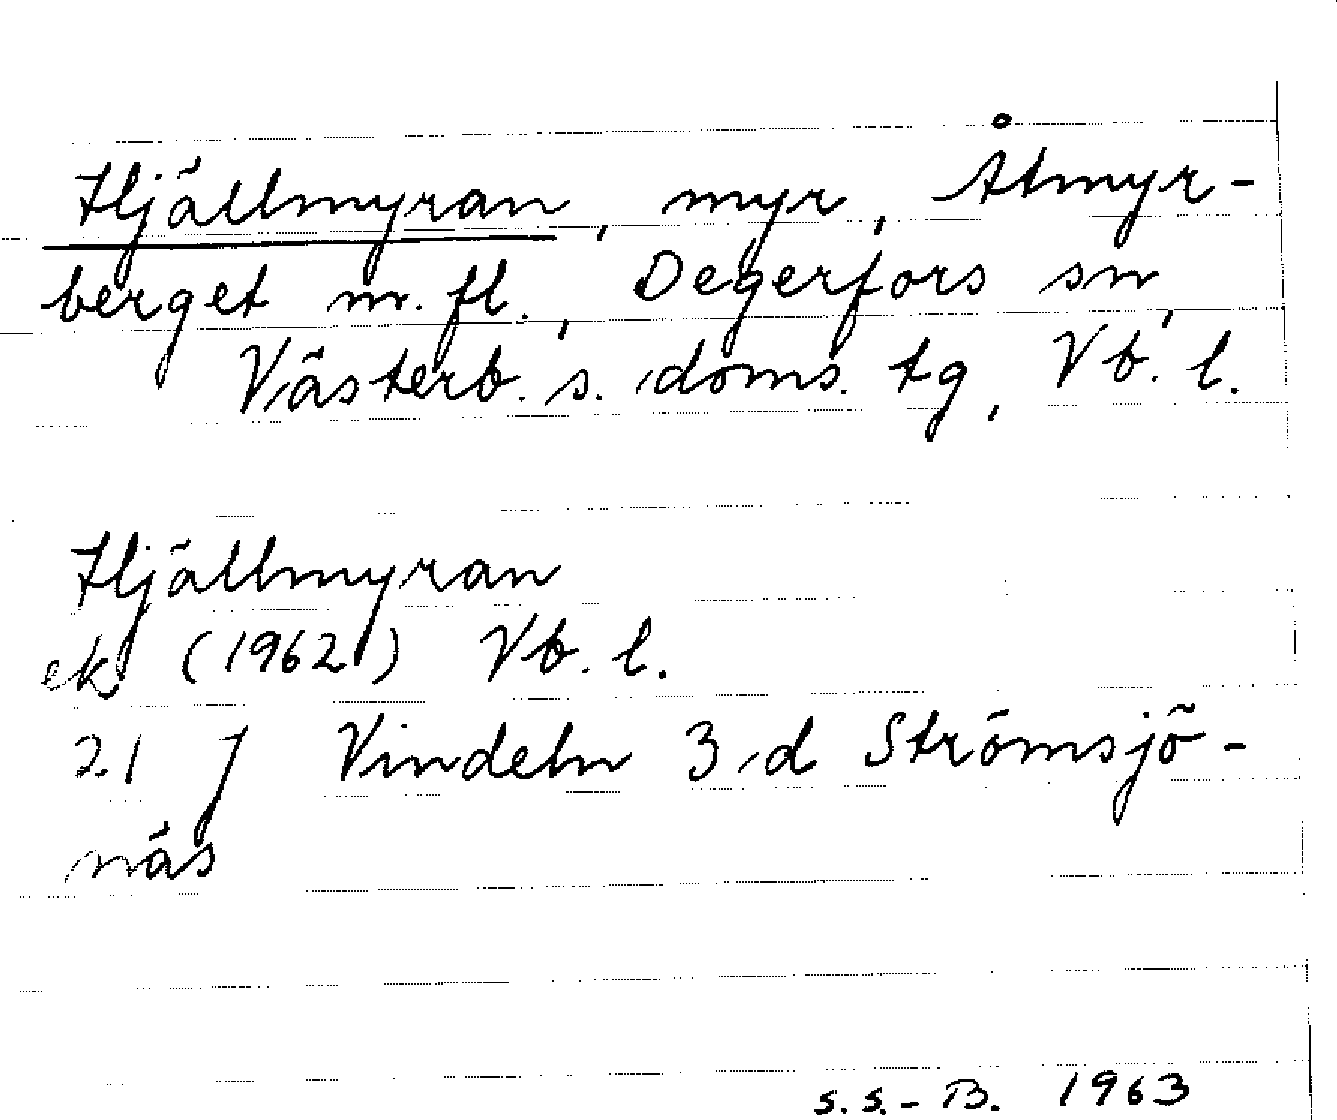 Hjällmyran, myr, Åtmyr-
berget m.fl., Degerfors sn,
Västerb. s. doms. tg, Vb. l.
Hjällmyran
ek (1962) Vb. l.
21 J Vindeln 3 d Strömsjö-
näs
S.S.-B. 1963